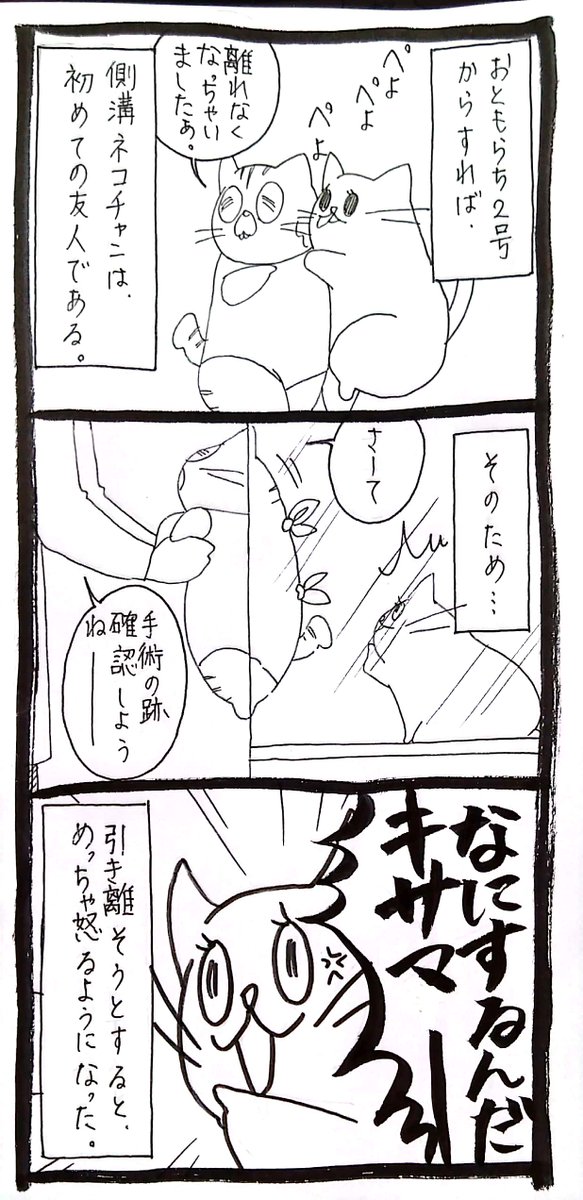 おともらち2号
からすれば、
ぺよ
ぺよ
ぺよ
離れなく
なっちゃい
ましたぁ。
側溝ネコチャンは、
初めての友人である。
そのため…
さーて
手術の跡、
確認しよう
ねーー
なにするんだ
キサマーーっ
引き離そうとすると、
めっちゃ怒るようになった。